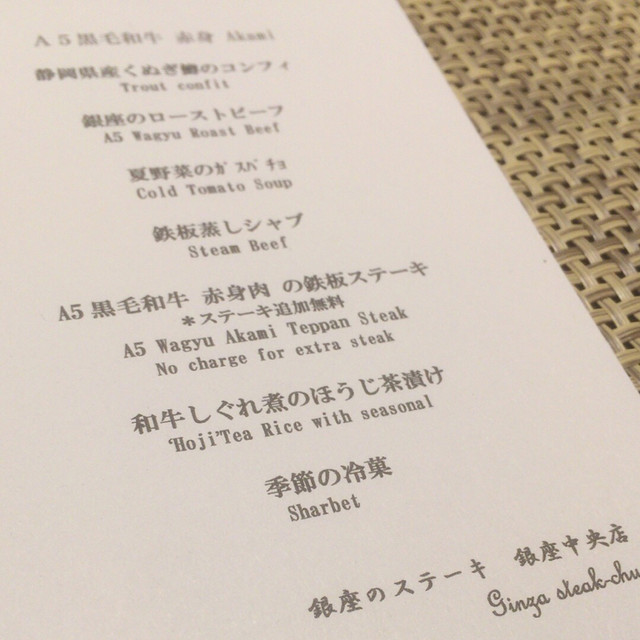 A5黒毛和牛 赤身 Akami
静岡県産くぬぎ鱒のコンフィ
Trout confit
銀座のローストビーフ
A5 Wagyu Roast Beef
夏野菜のｶﾞｽﾊﾟﾁｮ
Cold Tomato Soup
鉄板蒸しシャブ
Steam Beef
A5黒毛和牛 赤身肉 の鉄板ステーキ
＊ステーキ追加無料
A5 Wagyu Akami Teppan Steak
No charge for extra steak
和牛しぐれ煮のほうじ茶漬け
‘Hoji’Tea Rice with seasonal
季節の冷菓
Sharbet
銀座のステーキ 銀座中央店
Ginza steak-chu